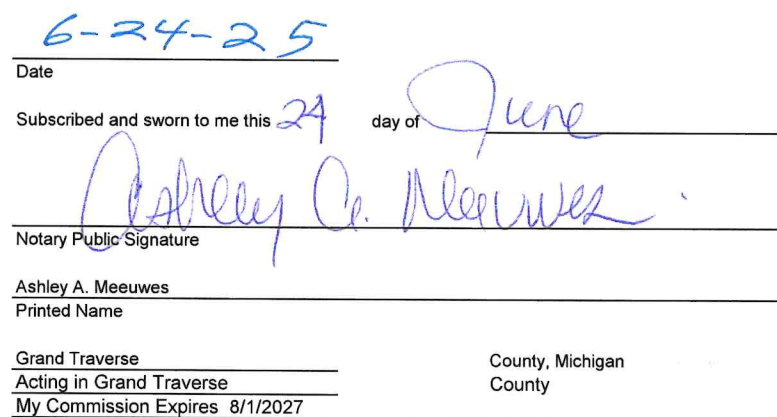 6-24-25
Date
Subscribed and sworn to me this 24 day of June
Ashley A. Meeuwes
Notary Public Signature
Ashley A. Meeuwes
Printed Name
Grand Traverse County, Michigan
Acting in Grand Traverse County
My Commission Expires 8/1/2027